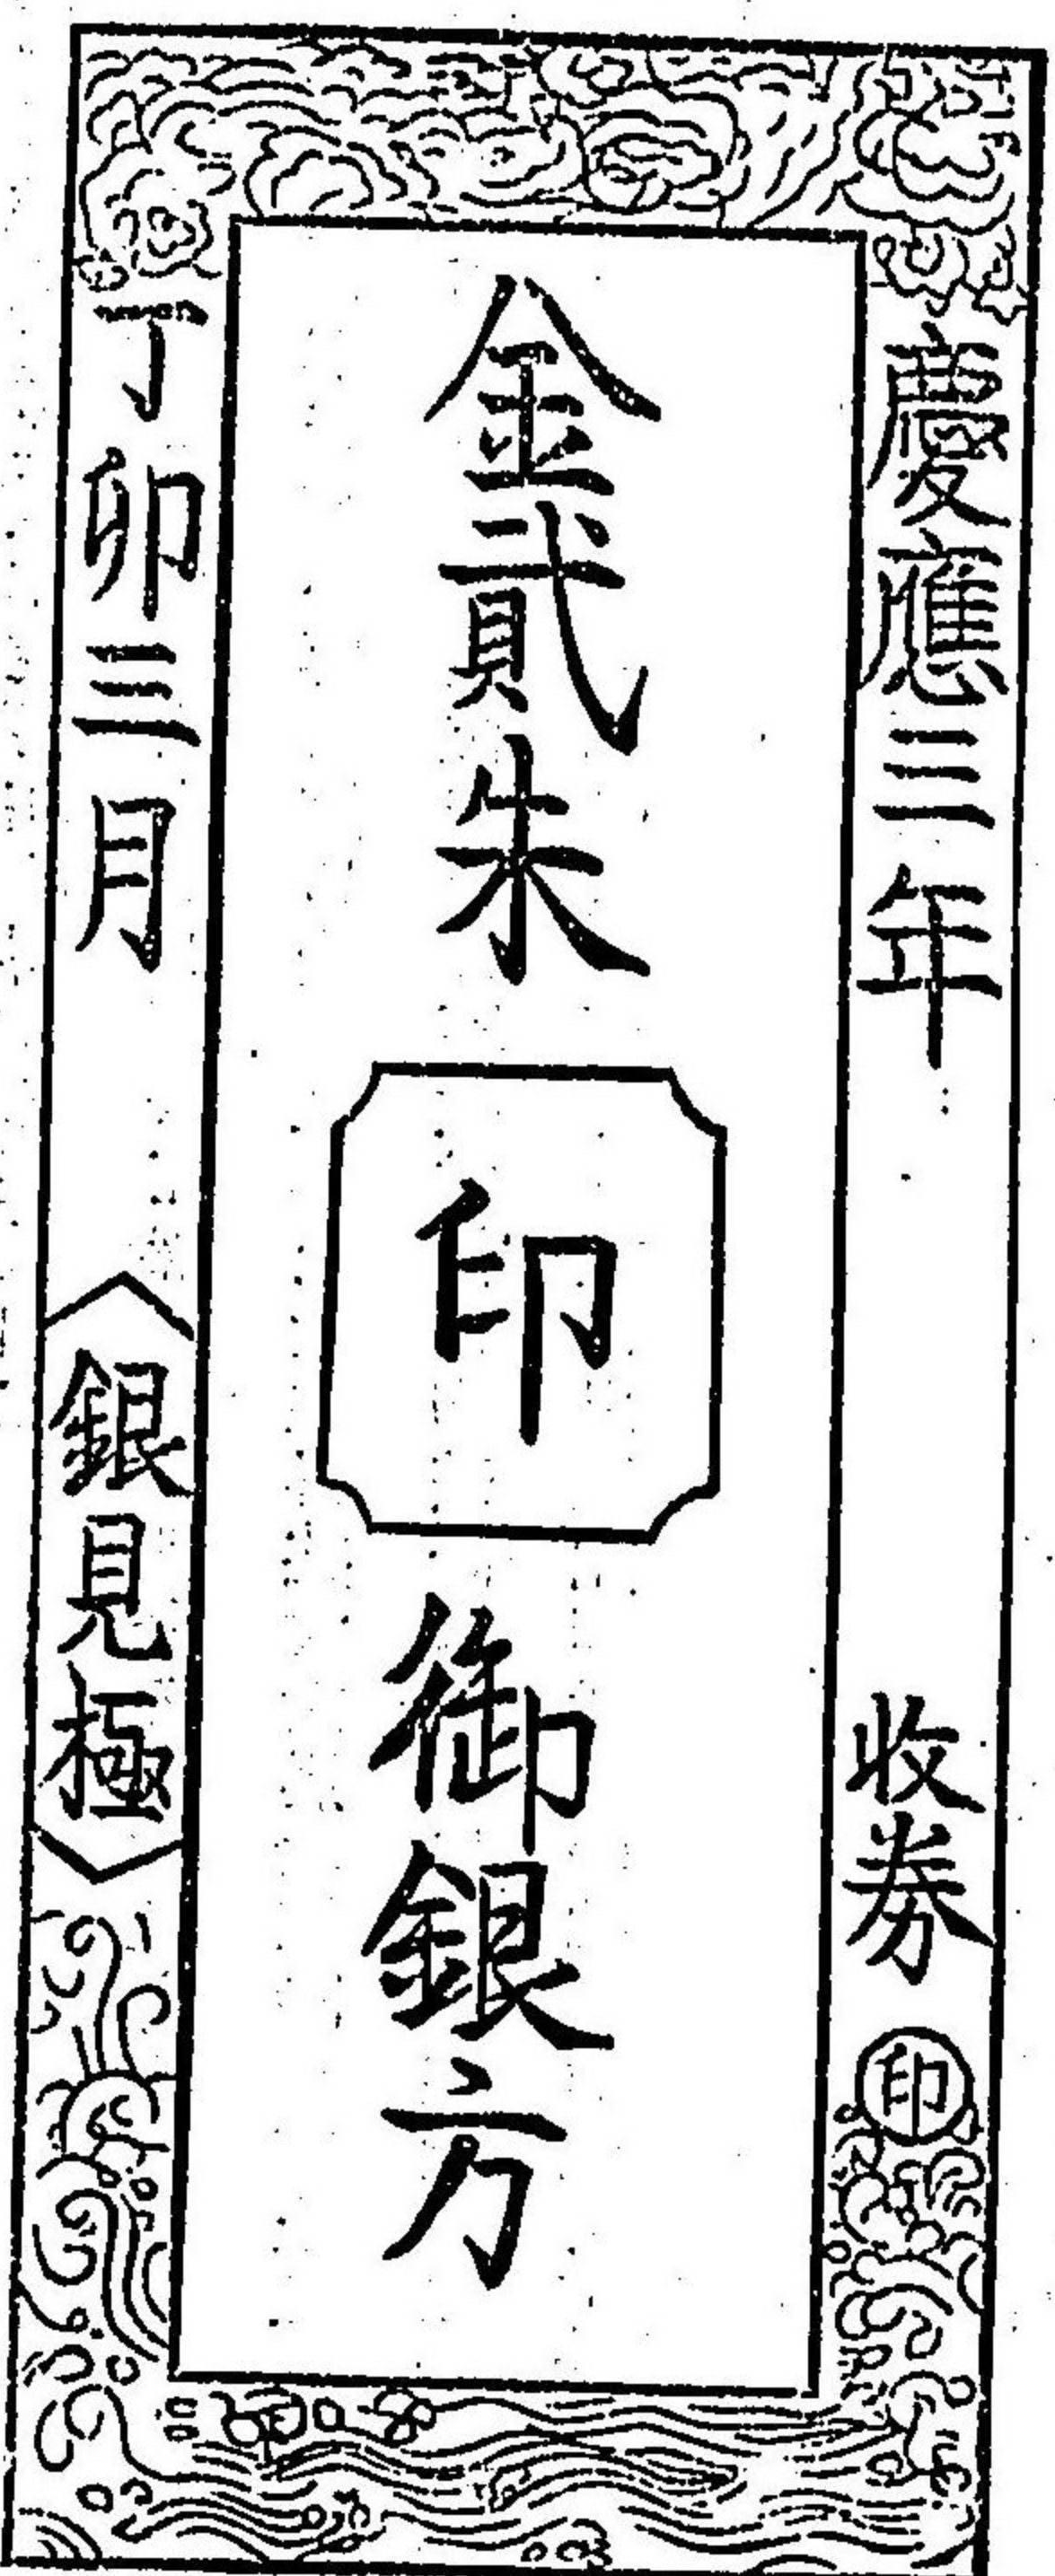 慶應三年 收券 印
金貳朱 印 御銀方
丁卯三月 銀見極